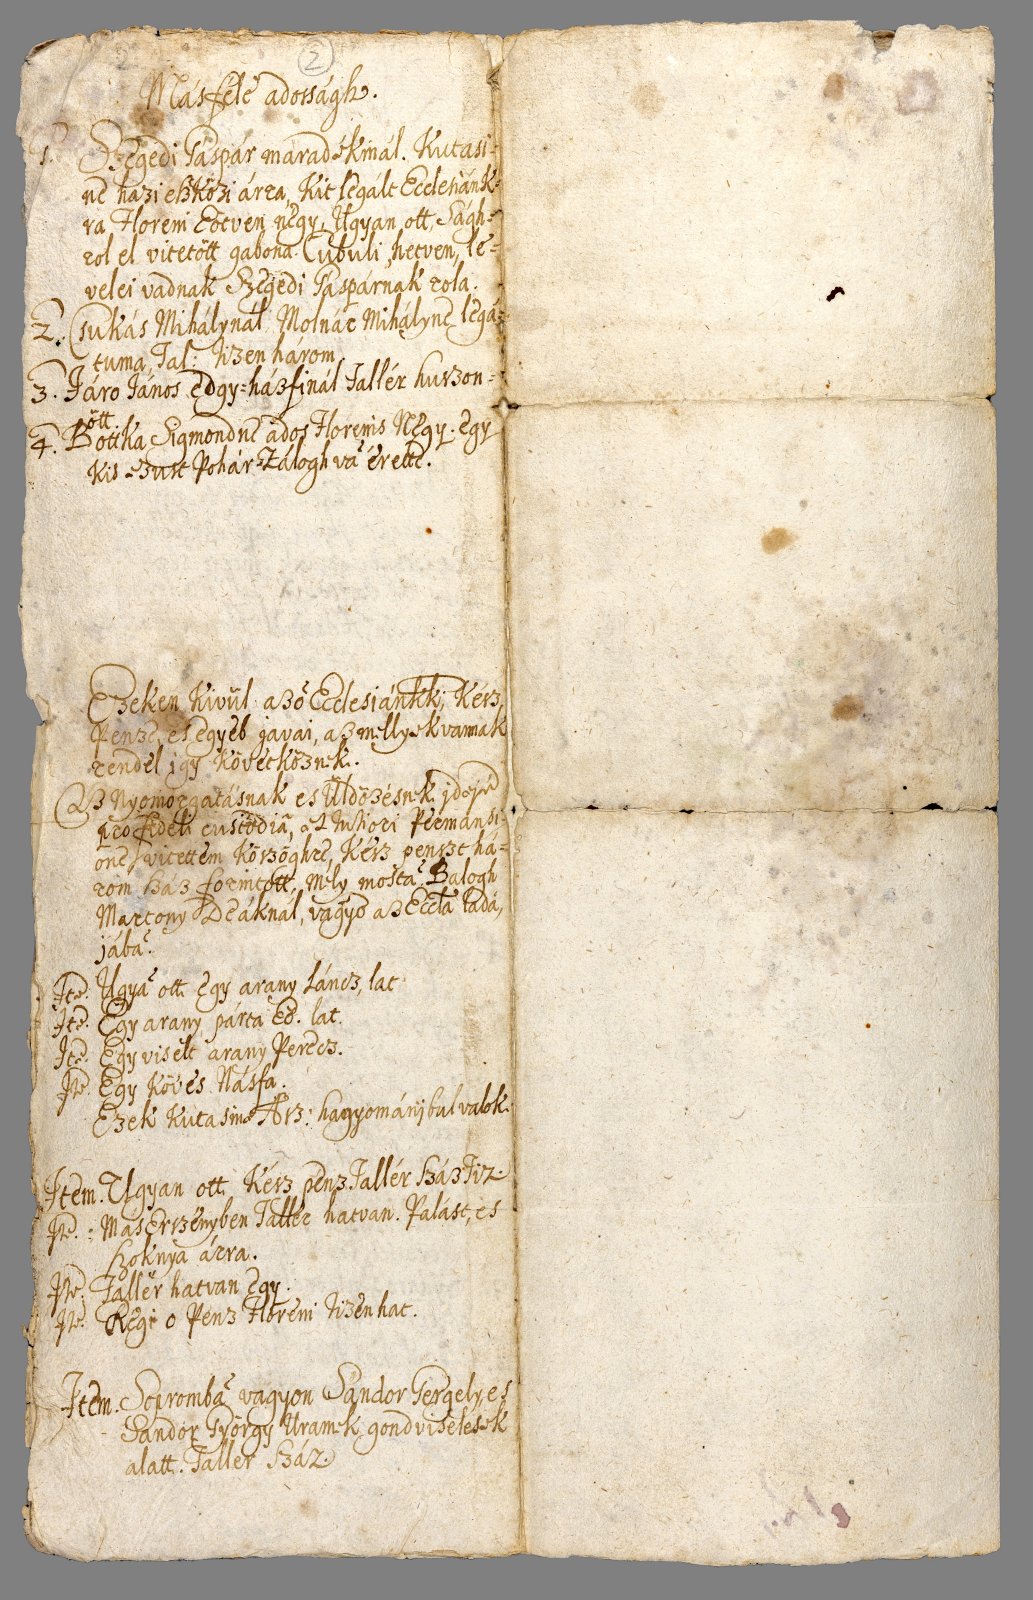 2
Másfele adosságh.
1. Szegedi Gáspár maradékinál. Kutasi-
ne hazi eszközi árra, Kit legált Ecclesiánk-
ra Floreni Eötven négy, Ugyan ott, Ságh-
rol el vitetött gabona Cubuli, hetven, le-
velei vadnak Szegedi Gáspárnak rola.
2. Csukás Mihálynál, Molnár Mihályne legá-
tuma, Tal: tizen három
3. Járo János Edgy-házfinál Tallér huszon-
ött
4. Bottka Sigmondne ados Florenis Negy. egy
Kis Ezust Pohár Zálogh va érette.
Ezeken Kivül azó Ecclesiánkk, Kész
Penze, es egyéb javai, az mellyek vannak
rendel igy Következnek.
Az Nyomorgatásnak es Üldözésnek idején
pro fideli custodia,
vitettem Köszöghre, Kész penszt há-
rom száz forintott, Mely mosta Balogh
Martony Deáknál, vagyo az Eccla ladá,
jába.
Ite. Ugya ott Egy arany Láncz, lat
Ite. Egy arany párta Eö. lat.
Ite. Egy viselt arany Perecz.
Ite. Egy Köves Násfa.
Ezek Kutasine Asz: hagyománijbul valok.
Item. Ugyan ott Kész pénz Tallér Száz Tiz.
Ite. : Más Erszényben Tallér hatvan. Palást, es
Szoknya árra.
Ite. Tallér hatvan Egy.
Ite. Regi o Penz Floreni tizenhat.
Item. Sopromba vagyon Sándor Gergely, es
Sandor György Uramek gondviselések
alatt. Taller Száz.